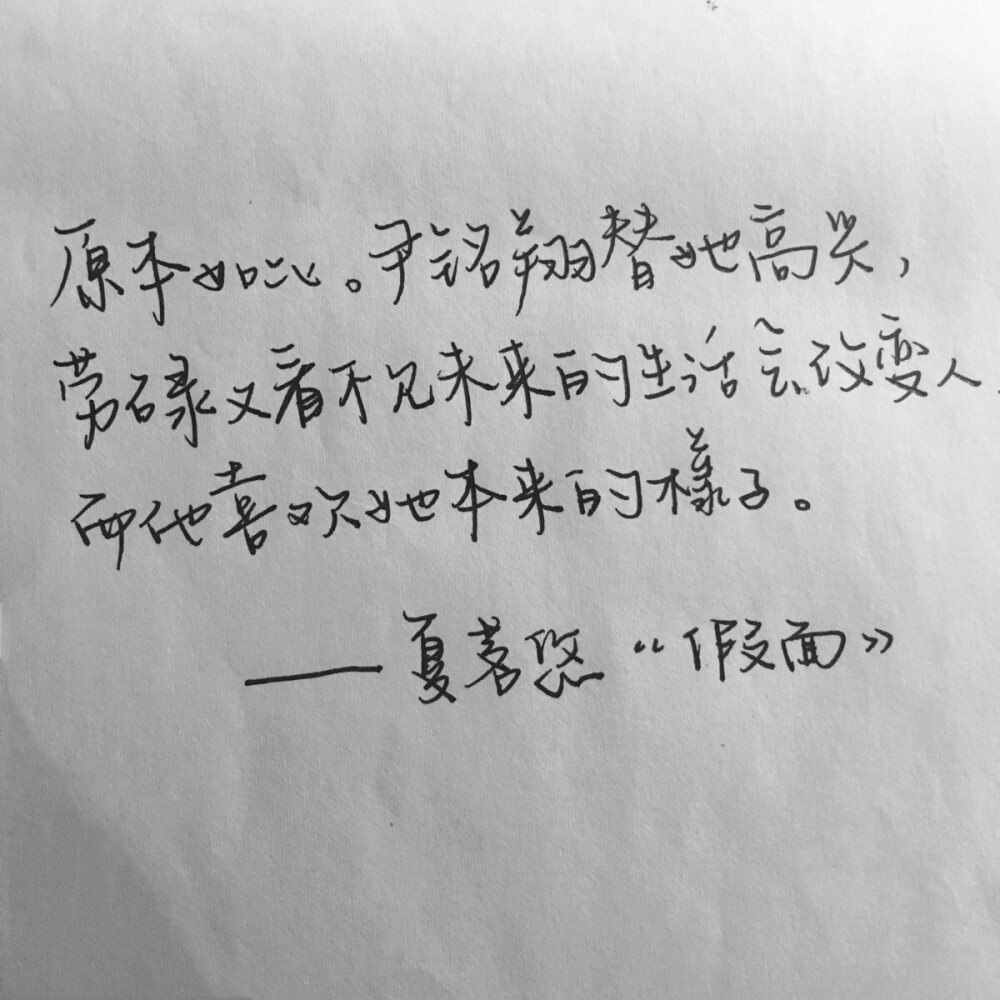 原本如此。尹铭翔替她高兴,
劳碌又看不见未来的生活会改变人,
而他喜欢她本来的樣子。
——夏茗悠“假面”